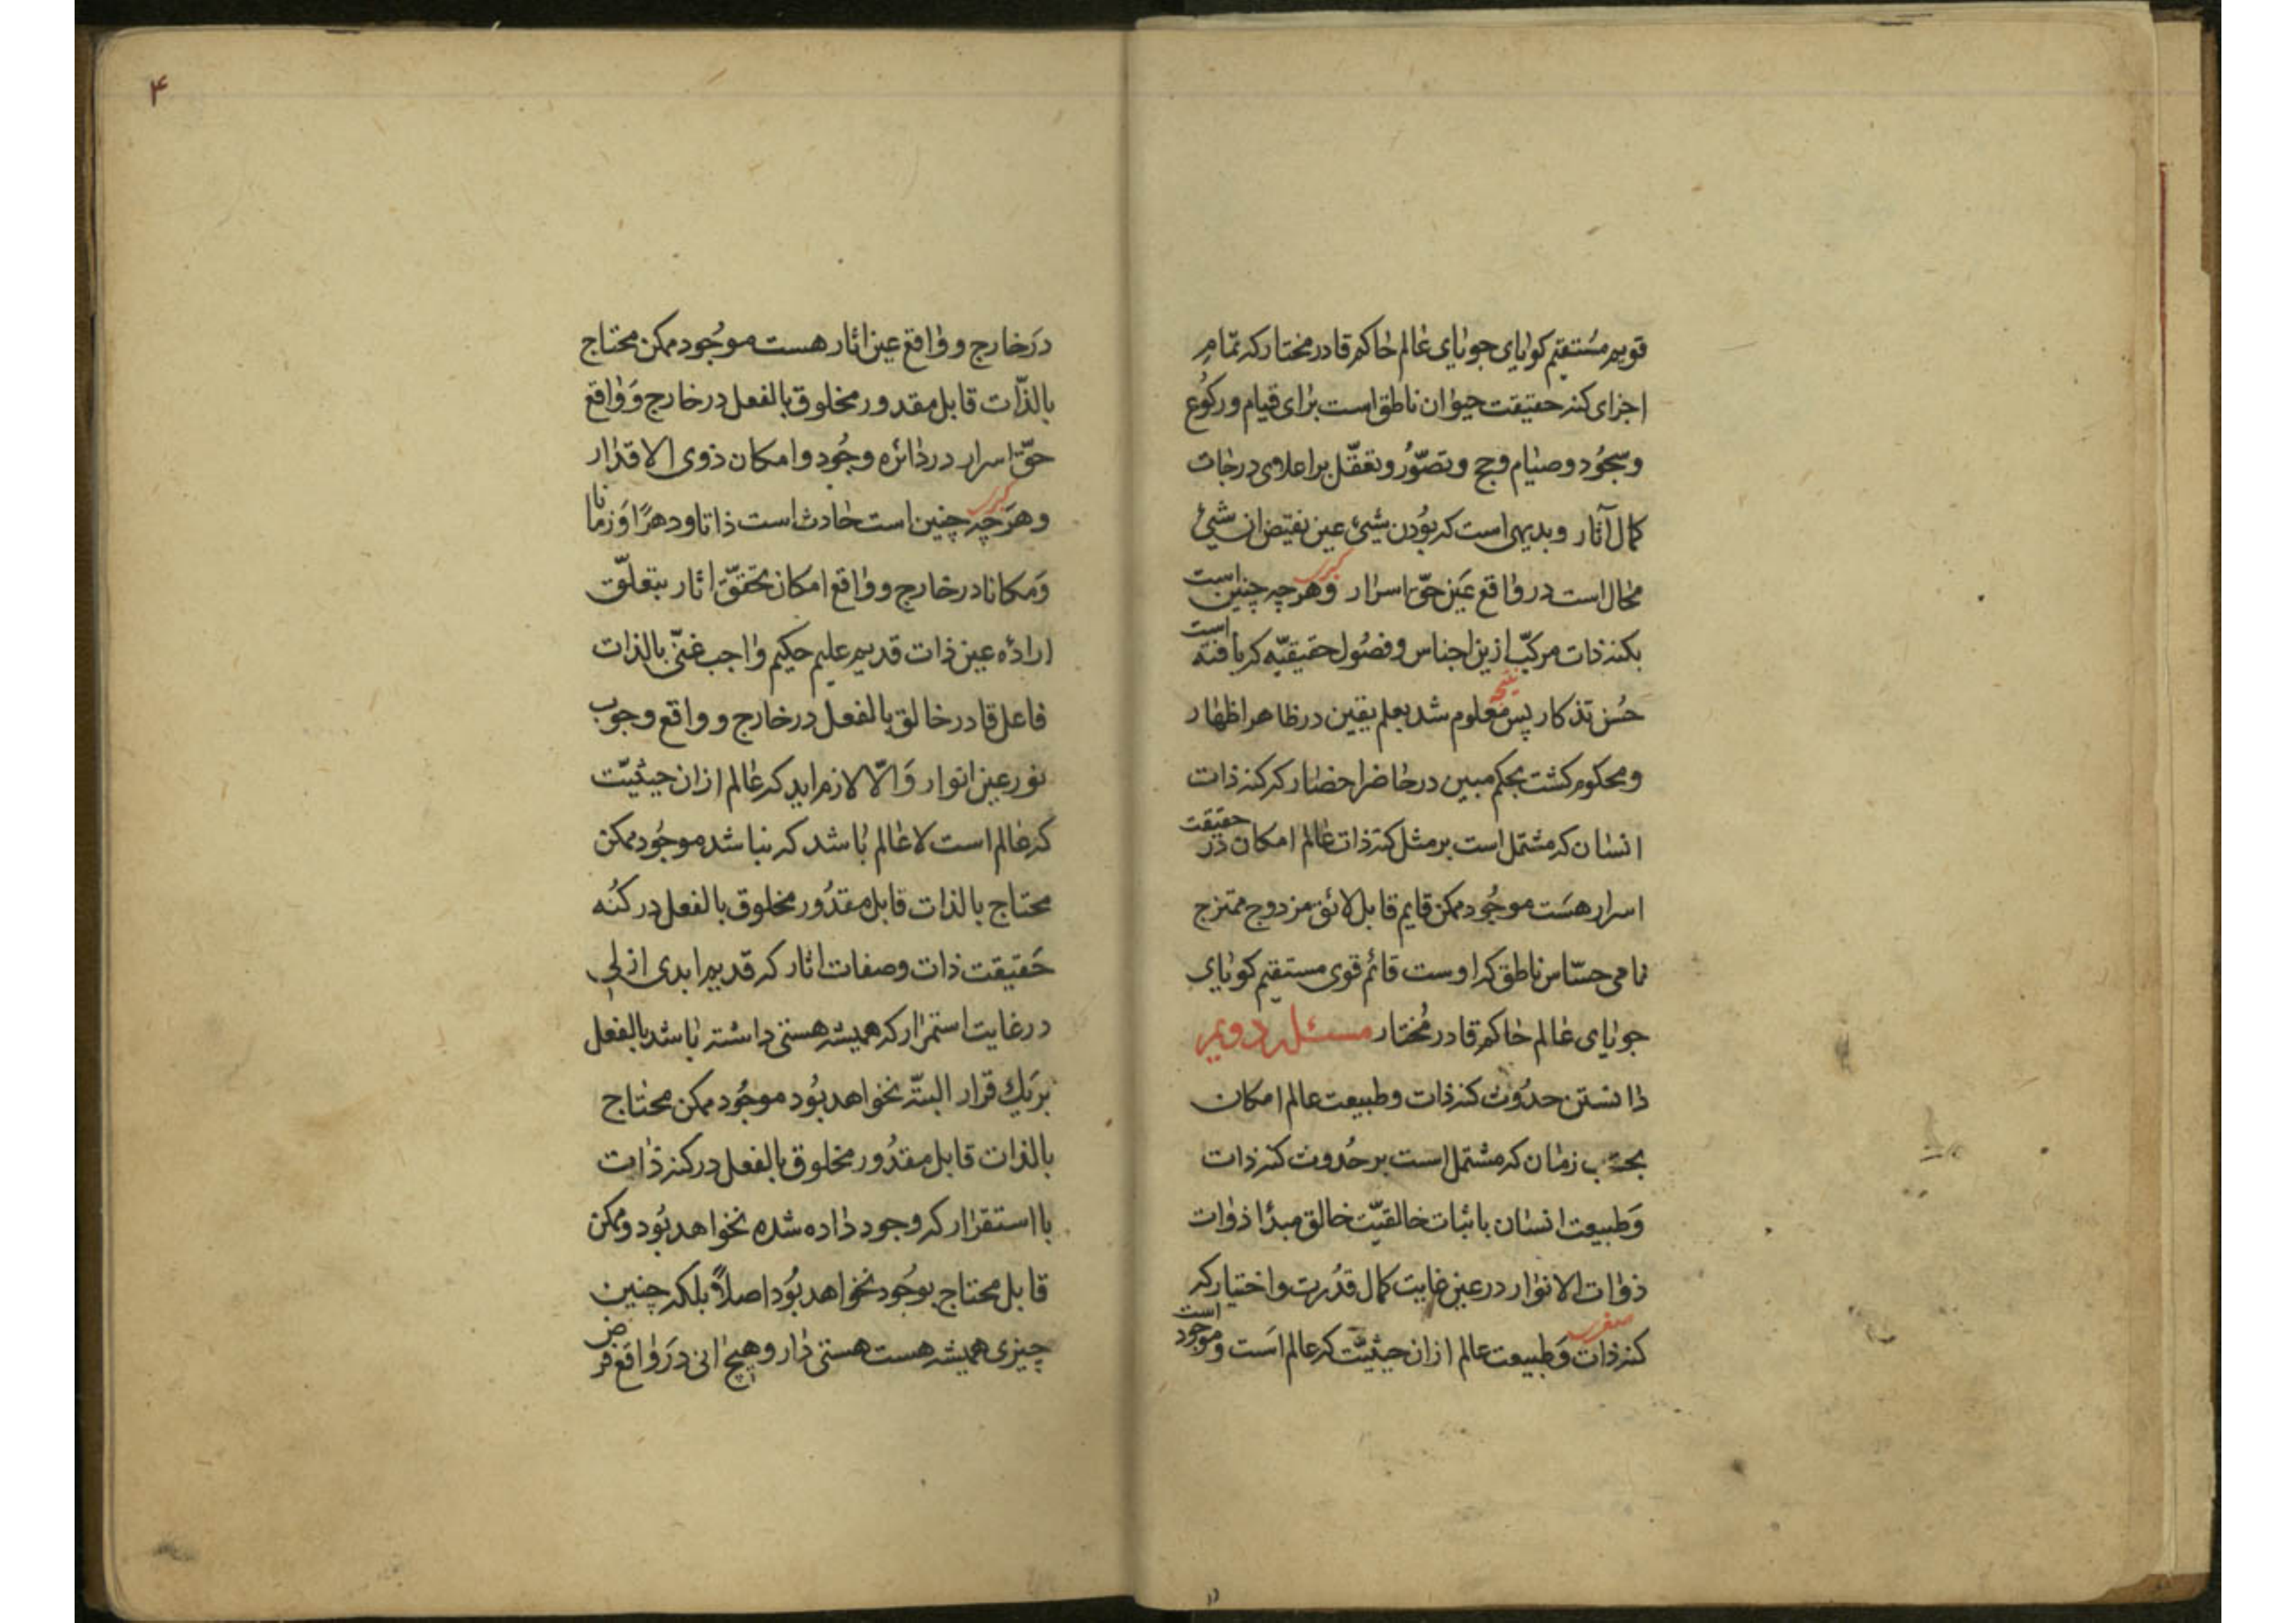 قویم مستقیم کویای جویای عالم حاکم قادر مختار که تمام
اجزای کنه حقیقت حیوان ناطق است برای قیام و رکوع
و سجود و صیام و حج و تصور و تعقل بر اعلای درجات
کمال آثار و بدیهی است که بودن شیئ عین نقیض ان شیئ
محال است در واقع عین حق اسرار کبری و هر چه چنین است
بکنه ذات مرکب ازین اجناس و فصول حقیقیه که یافته است
حسن تذکار پس نتیجه معلوم شد بعلم یقین در ظاهر اظهار
و محکوم کشت بحکم مبین در حاضر احضار که کنه ذات
انسان که مشتمل است بر مثل کنه ذات عالم امکان در حقیقت
اسرار هست موجود ممکن قایم قابل لائق مزدوج ممتزج
نامی حساس ناطق که اوست قائم قوی مستقیم کویای
جویای عالم حاکم قادر مختار مسئله دویم
دانستن حدوث کنه ذات و طبیعت عالم امکان
بحسب زمان که مشتمل است بر حدوث کنه ذات
و طبیعت انسان باثبات خالقیت خالق مبدا ذوات
ذوات الانوار در عین غایت کمال قدرت و اختیار که
صغری کنه ذات و طبیعت عالم از ان حیثیت که عالم است و موجود است
۴
در خارج و واقع عین اثار هست موجود ممکن محتاج
بالذات قابل مقدور مخلوق بالفعل در خارج و واقع
حق اسرار در دائره وجود و امکان ذوی الاقدار
کبری و هر چه چنین است حادث است ذاتا و دهرا و زمانا
و مکانا در خارج و واقع امکان تحقق اثار بتعلق
اراده عین ذات قدیم علیم حکیم واجب غنی بالذات
فاعل قادر خالق بالفعل در خارج و واقع وجوب
نور عین انوار و الا لازم اید که عالم از ان حیثیت
که عالم است لا عالم باشد که نباشد موجود ممکن
محتاج بالذات قابل مقدور مخلوق بالفعل در کنه
حقیقت ذات و صفات اثار که قدیم ابدی ازلی
در غایت استمرار که همیشه هستی داشته باشد بالفعل
بر یک قرار البته نخواهد بود موجود ممکن محتاج
بالذات قابل مقدور مخلوق بالفعل در کنه ذات
با استقرار که وجود داده شده نخواهد بود و ممکن
قابل محتاج بوجود نخواهد بود اصلا بلکه چنین
چیزی همیشه هست هستی دار و هیچ انی در واقع فرض